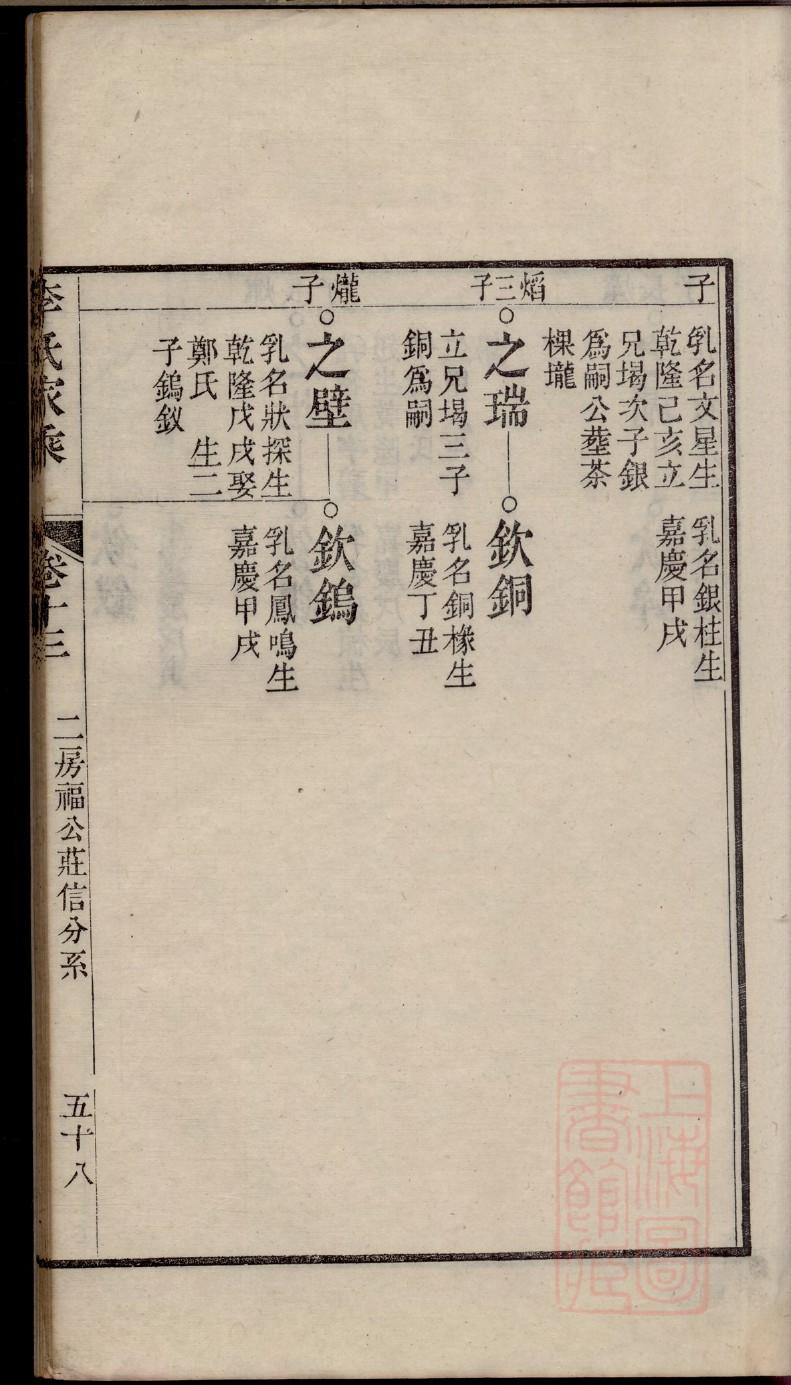 子
乳名文星生
乾隆己亥立
兄堨次子銀
為嗣公塟茶
棵壠
乳名銀桂生
嘉慶甲戌
熖三子
之瑞
立兄堨三子
銅為嗣
欽銅
乳名銅椽生
嘉慶丁丑
爖子
之壁
乳名狀探生
乾隆戊戌娶
鄭氏 生二
子鎢釹
欽鎢
乳名鳳鳴生
嘉慶甲戌
李氏家乘
卷十三
二房福公莊信分系
五十八
上海圖書館藏